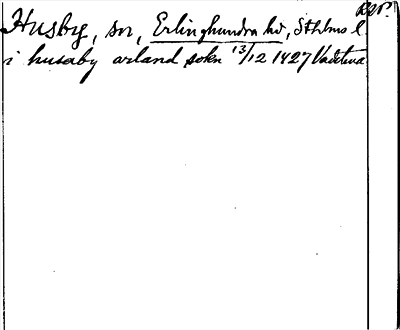 Husby, sn, Erlinghundra hd, Sthlms l
i husaby arland sokn 13/12 1427 Vadstena